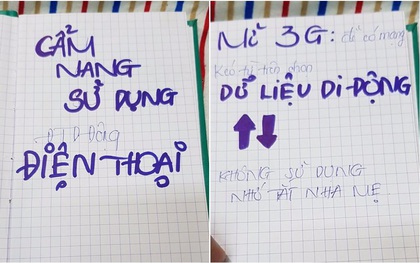 CẨM
NANG
SỬ DỤNG
ĐIỆN THOẠI
Mở 3G: để có mạng
Kéo từ trên
DỮ LIỆU Di ĐỘNG
KHÔNG SỬ DỤNG
NHỚ TẮT NHA MẸ